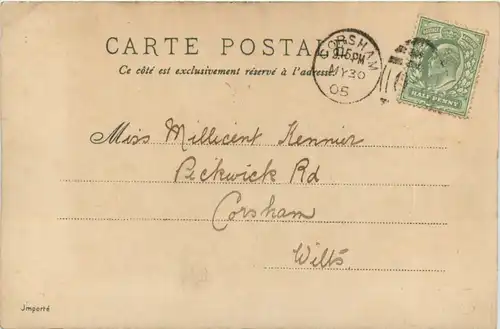 CARTE POSTALE
Ce côté est exclusivement réservé à l'adresse
CORSHAM
PM
MY 30
05
HALF PENNY
Miss Millicent Kennier
Pickwick Rd
Corsham
Wilts
Importé